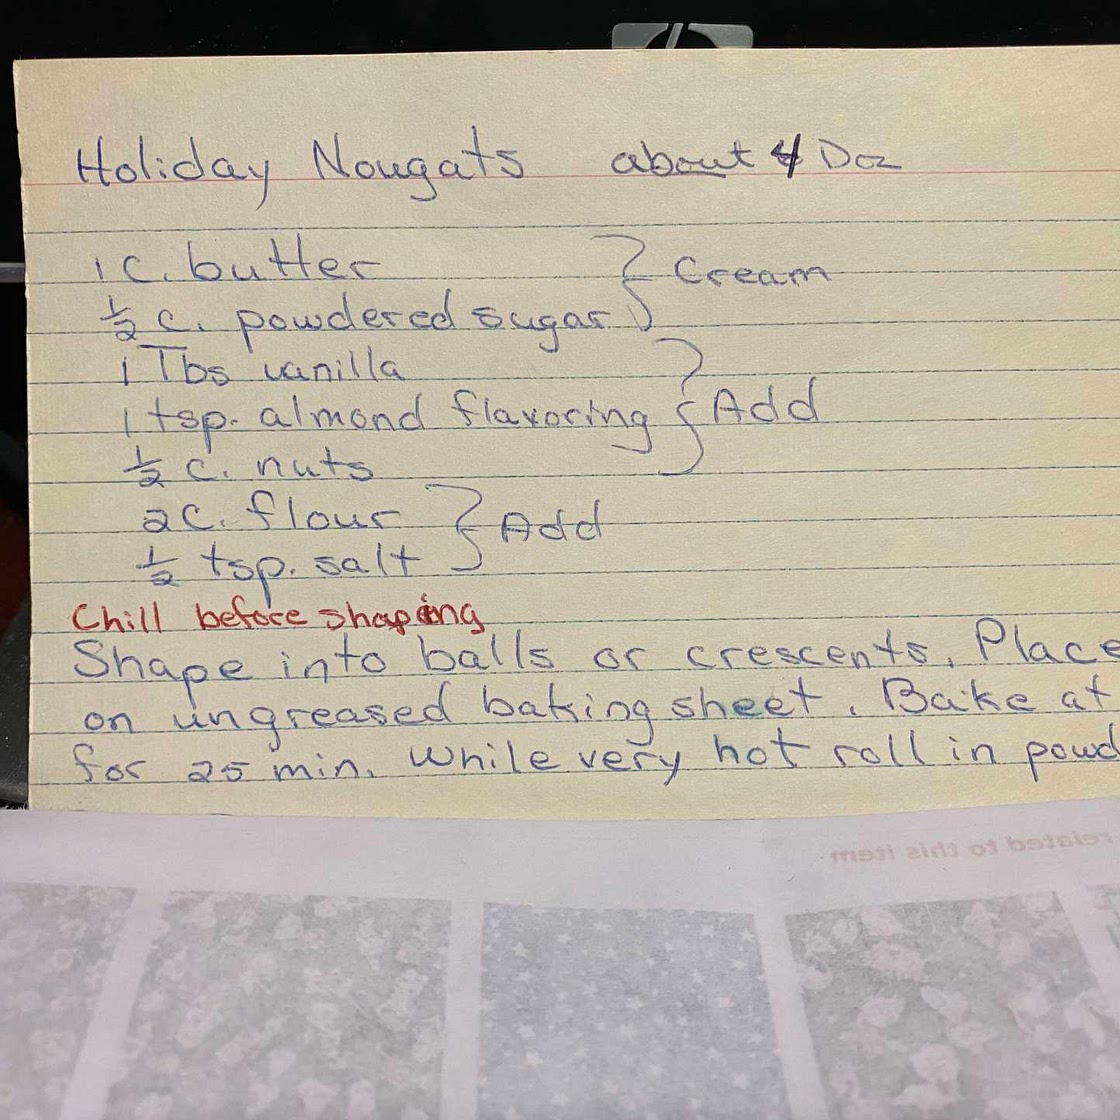 Holiday Nougats about 4 Doz
1 c. butter } Cream
½ c. powdered sugar
1 Tbs vanilla
1 tsp. almond flavoring } Add
½ c. nuts
2 c. flour } Add
½ tsp. salt
Chill before shaping
Shape into balls or crescents. Place
on ungreased baking sheet. Bake at
for 25 min. While very hot roll in powd
related to this item